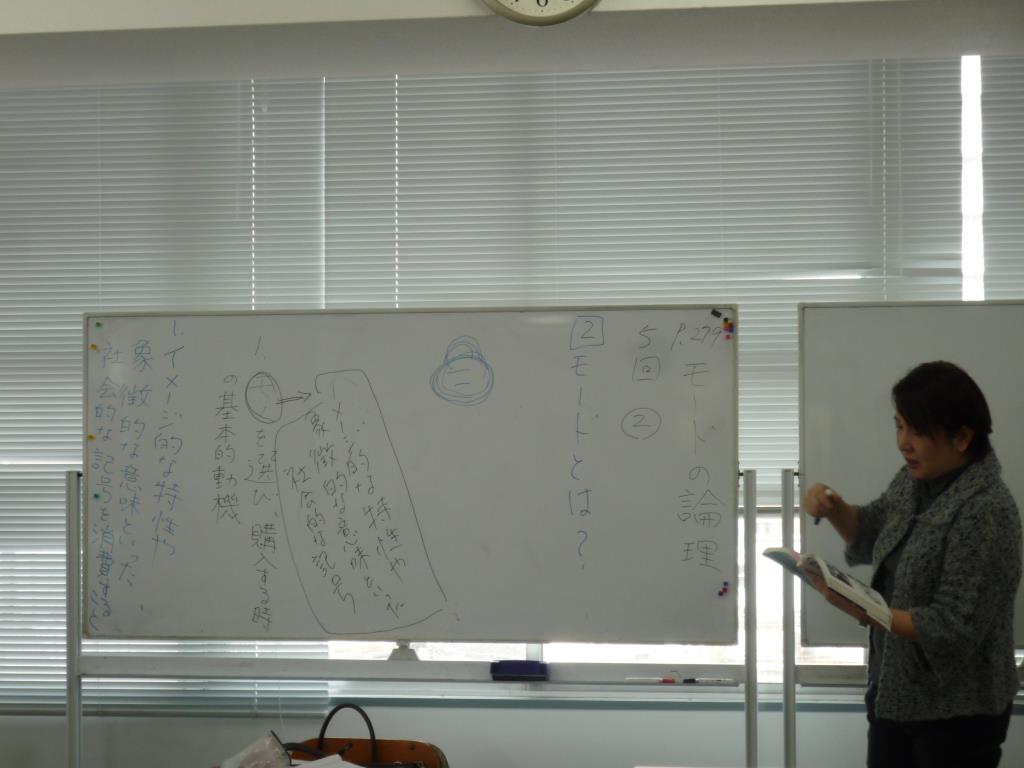 P.279 モードの論理
5回 ②
2 モードとは?
イメージ的な特性や
象徴的な意味といった
社会的な記号
1.
を選び、購入する時
の基本的動機
1. イメージ的な特性や
象徴的な意味といった、
社会的な記号を消費すること
6